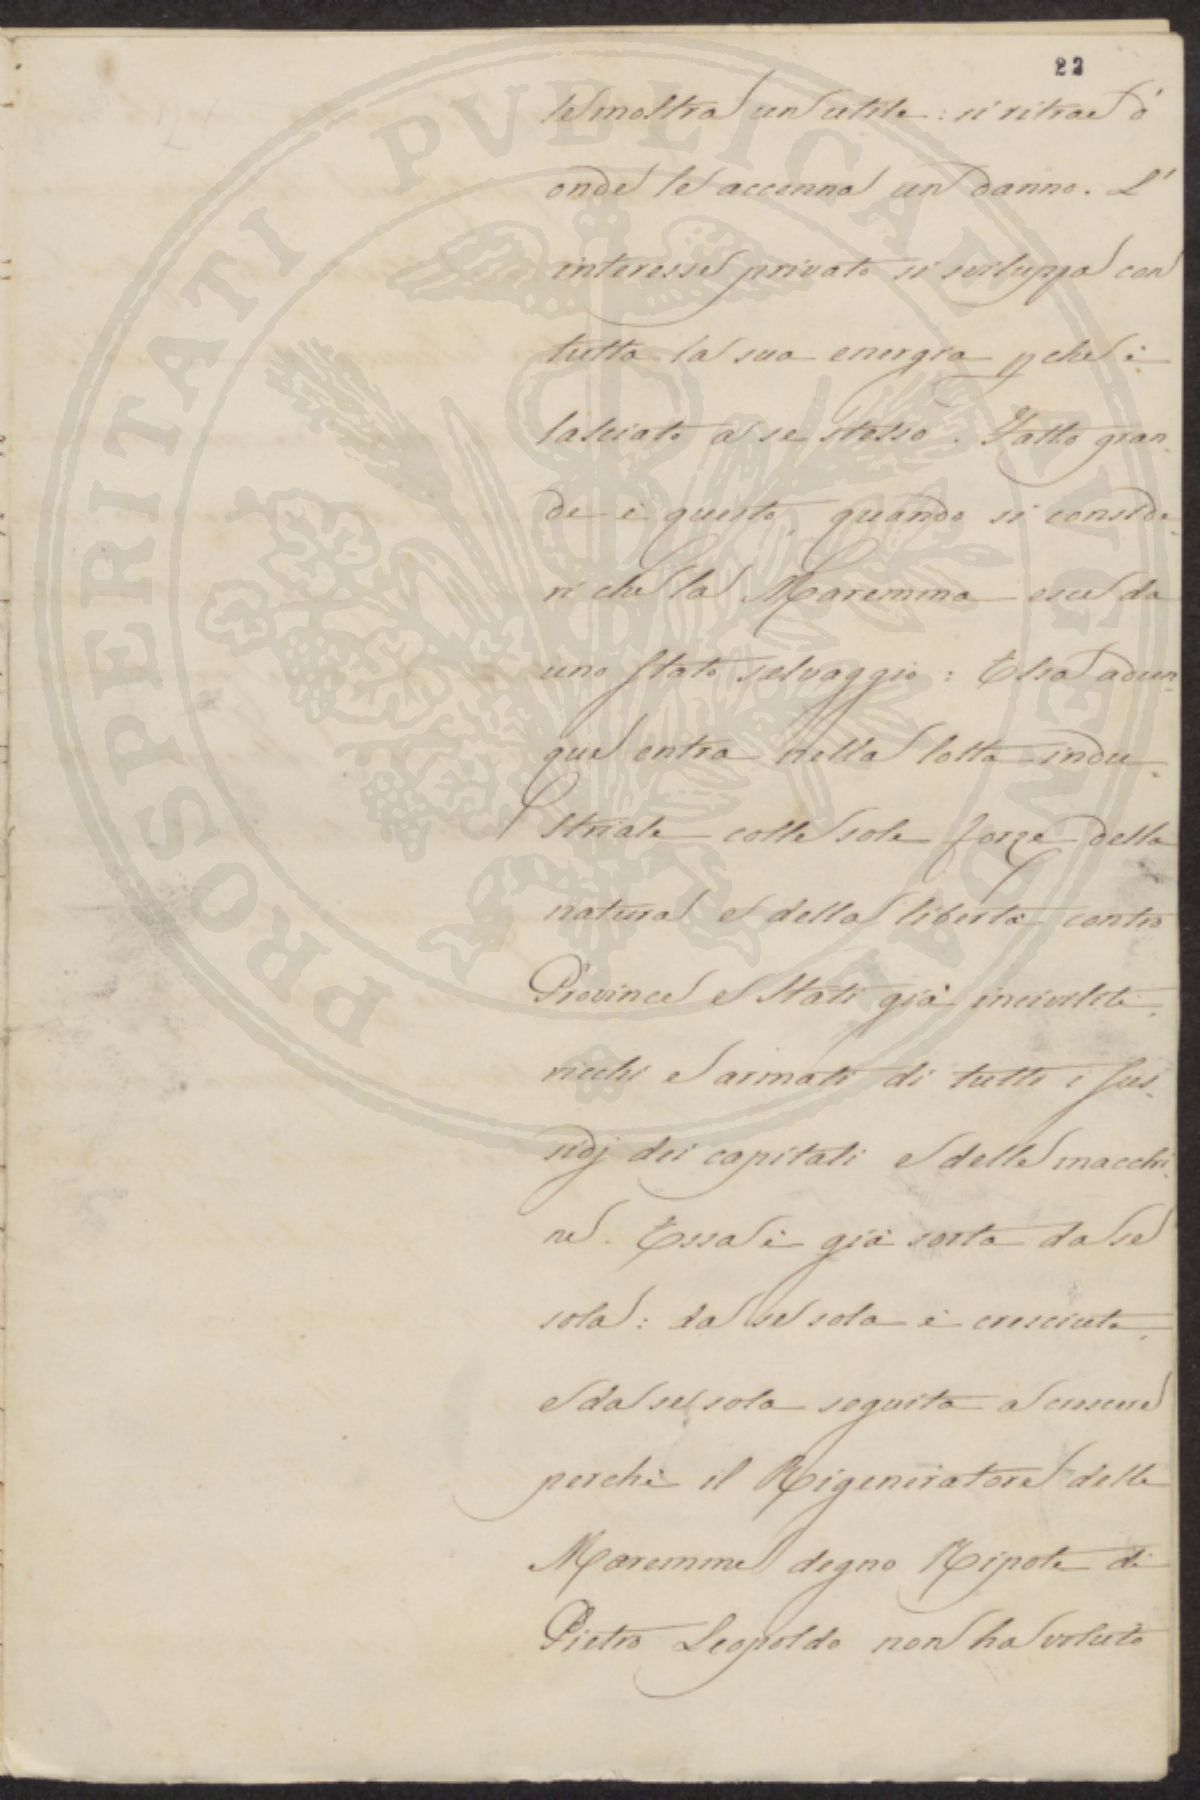 22
le mostra un utile: si ritrae d'
onde le accenna un danno. L'
interesse privato si sviluppa con
tutta la sua energia pche è
lasciato a se stesso. Fatto gran-
de è questo, quando si conside-
ri che la Maremma esce da
uno stato selvaggio: Essa adun-
que entra nella lotta indu-
striale colle sole forze della
natura e della libertà contro
Province e Stati già inciviliti,
ricchi e armati di tutti i sus-
sidj dei capitali e delle macchi-
ne. Essa è già sorta da se
sola: da se sola è cresciuta,
e da se sola seguita a crescere
perchè il Rigeneratore delle
Maremme degno Nipote di
Pietro Leopoldo non ha voluto
PROSPERITATI PVBLICAE AVGENDAE